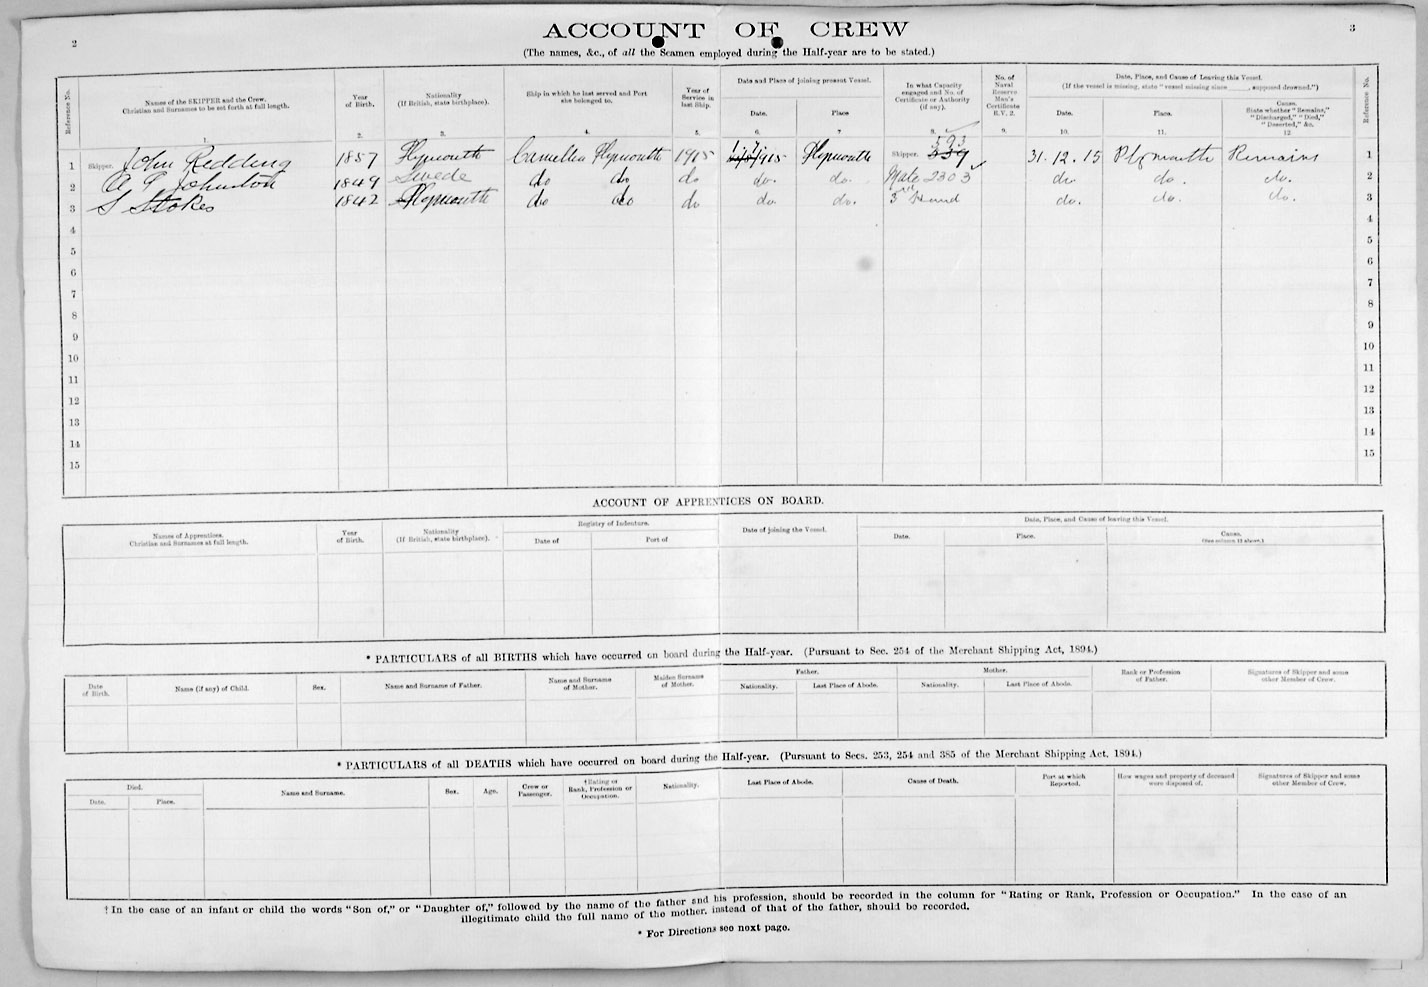 2
ACCOUNT OF CREW
3
(The names, &c., of all the Seamen employed during the Half-year are to be stated.)
Reference No.
Names of the SKIPPER and the Crew.
Christian and Surnames to be set forth at full length.
1.
Year
of Birth.
2.
Nationality
(If British, state birthplace).
3.
Ship in which he last served and Port
she belonged to.
4.
Year of
Service in
last Ship.
5.
Date and Place of joining present Vessel.
Date.
6.
Place
7
In what Capacity
engaged and No. of
Certificate or Authority
(if any).
8.
No. of
Naval
Reserve
Men's
Certificate
R.V. 2.
9.
Date, Place, and Cause of Leaving this Vessel.
(If the vessel is missing, state "vessel missing since ____, supposed drowned.")
Date.
10.
Place.
11.
Cause.
State whether "Remains,"
"Discharged," "Died,"
"Deserted," &c.
12
Reference No.
593
1 Skipper. John Redding 1857 Plymouth Camellia Plymouth 1915 1915 Plymouth Skipper. 339 31.12.15 Plymouth Remains 1
2 Johnston 1849 Swede do do do do. do. Mate 2303 do. do. do. 2
3 S Stokes 1842 Plymouth do do do do. do. 3rd Hand do. do. do. 3
4 4
5 5
6 6
7 7
8 8
9 9
10 10
11 11
12 12
13 13
14 14
15 15
ACCOUNT OF APPRENTICES ON BOARD.
Names of Apprentices.
Christian and Surnames at full length.
Year
of Birth.
Nationality
(If British, state birthplace).
Registry of Indenture.
Date of
Port of
Date of joining the Vessel.
Date, Place, and Cause of leaving this Vessel.
Date.
Place.
Cause.
(See column 12 above.)
* PARTICULARS of all BIRTHS which have occurred on board during the Half-year. (Pursuant to Sec. 254 of the Merchant Shipping Act, 1894.)
Date
of Birth.
Name (if any) of Child.
Sex.
Name and Surname of Father.
Name and Surname
of Mother.
Maiden Surname
of Mother.
Father.
Nationality.
Last Place of Abode.
Mother.
Nationality.
Last Place of Abode.
Rank or Profession
of Father.
Signatures of Skipper and some
other Member of Crew.
* PARTICULARS of all DEATHS which have occurred on board during the Half-year. (Pursuant to Secs. 253, 254 and 385 of the Merchant Shipping Act, 1894.)
Died.
Date.
Place.
Name and Surname.
Sex.
Age.
Crew or
Passenger.
†Rating or
Rank, Profession or
Occupation.
Nationality.
Last Place of Abode.
Cause of Death.
Port at which
Reported.
How wages and property of deceased
were disposed of.
Signatures of Skipper and some
other Member of Crew.
†In the case of an infant or child the words "Son of," or "Daughter of," followed by the name of the father and his profession, should be recorded in the column for "Rating or Rank, Profession or Occupation." In the case of an
illegitimate child the full name of the mother, instead of that of the father, should be recorded.
* For Directions see next page.